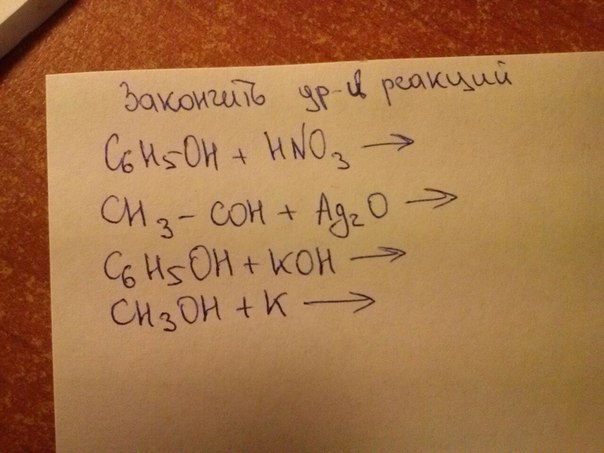 Закончить ур-я реакций
C₆H₅OH + HNO₃ →
CH₃ – COH + Ag₂O →
C₆H₅OH + KOH →
CH₃OH + K →